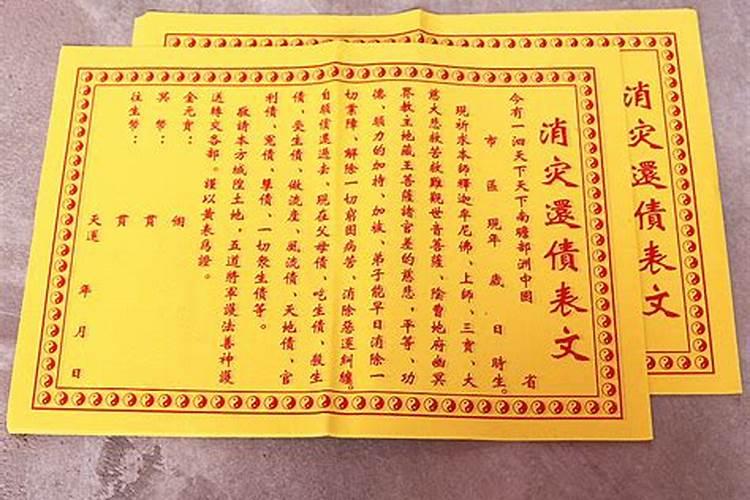 消灾還債表文
今有一泗天下天下南瞻部洲中國 省
市 區 現年 歲 日 時生。
現祈求本師釋迦牟尼佛、上師、三寶、大
慈大悲救苦救難觀世音菩薩、陰曹地府幽冥
界教主地藏王菩薩諸官差的慈悲,平等、功
德、願力的加持、加被、弟子能早日消除一
切業障、解除一切窮困病苦、消除惡運糾纏。
自願償還過去、現在父母債、吃生債、殺生
債、受生債、做流産、風流債、天地債、官
利債、冤債、孽債、一切衆生債等。
敬請本方城隍土地,五道將軍護法善神護
送轉交各部。謹以黄表爲證。
金元寶: 個
冥幣: 貫
往生幣: 貫
天運 年 月 日
消灾還債表文